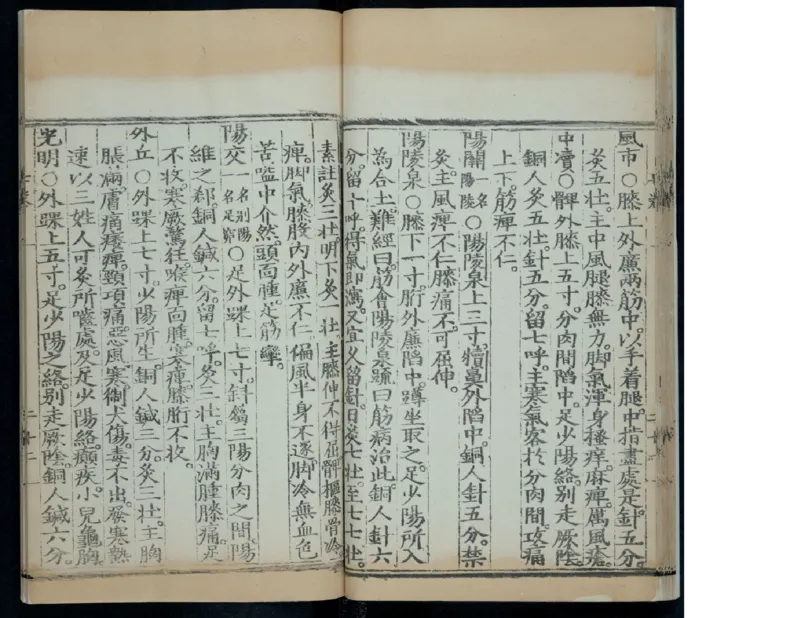 風市○膝上外廉兩筋中。以手着腿。中指盡處是。針五分。
灸五壯。主中風腿膝無力。脚氣渾身搔痒。麻痺。厲風瘡。
中瀆○髀外膝上五寸。分肉間陷中。足少陽絡。別走厥陰。
銅人灸五壯。針五分。留七呼。主寒氣客於分肉間。攻痛
上下。筋痺不仁。
陽關一名陽陵○陽陵泉上三寸。犢鼻外陷中。銅人針五分。禁
灸。主風痺不仁。膝痛不可屈伸。
陽陵泉○膝下一寸。胻外廉陷中。蹲坐取之。足少陽所入
為合土。難經曰。筋會陽陵泉。疏曰。筋病治此。銅人針六
分。留十呼。得氣即瀉。又宜久留針。日灸七壯。至七七壯。
素註灸三壯。明下灸一壯。主膝伸不得屈。髀樞膝骨冷
痺。脚氣膝股內外廉不仁。偏風半身不遂。脚冷無血色
苦嗌中介然。頭面腫。足筋攣。
陽交一名別陽一名足○足外踝上七寸。斜屬三陽分肉之間。陽
維之郄。銅人鍼六分。留七呼。灸三壯。主胸滿腫膝痛。足
不收。寒厥驚狂。喉痺面腫。寒痺。膝胻不收。
外丘○外踝上七寸。少陽所生。銅人鍼三分。灸三壯。主胸
脹滿。膚痛痿痺。頸項痛。惡風寒。猘犬傷。毒不出。發寒熱
速以三姓人可灸所嚙處。及足少陽絡。癲疾。小兒龜胸
光明○外踝上五寸。足少陽之絡。別走厥陰。銅人鍼六分。